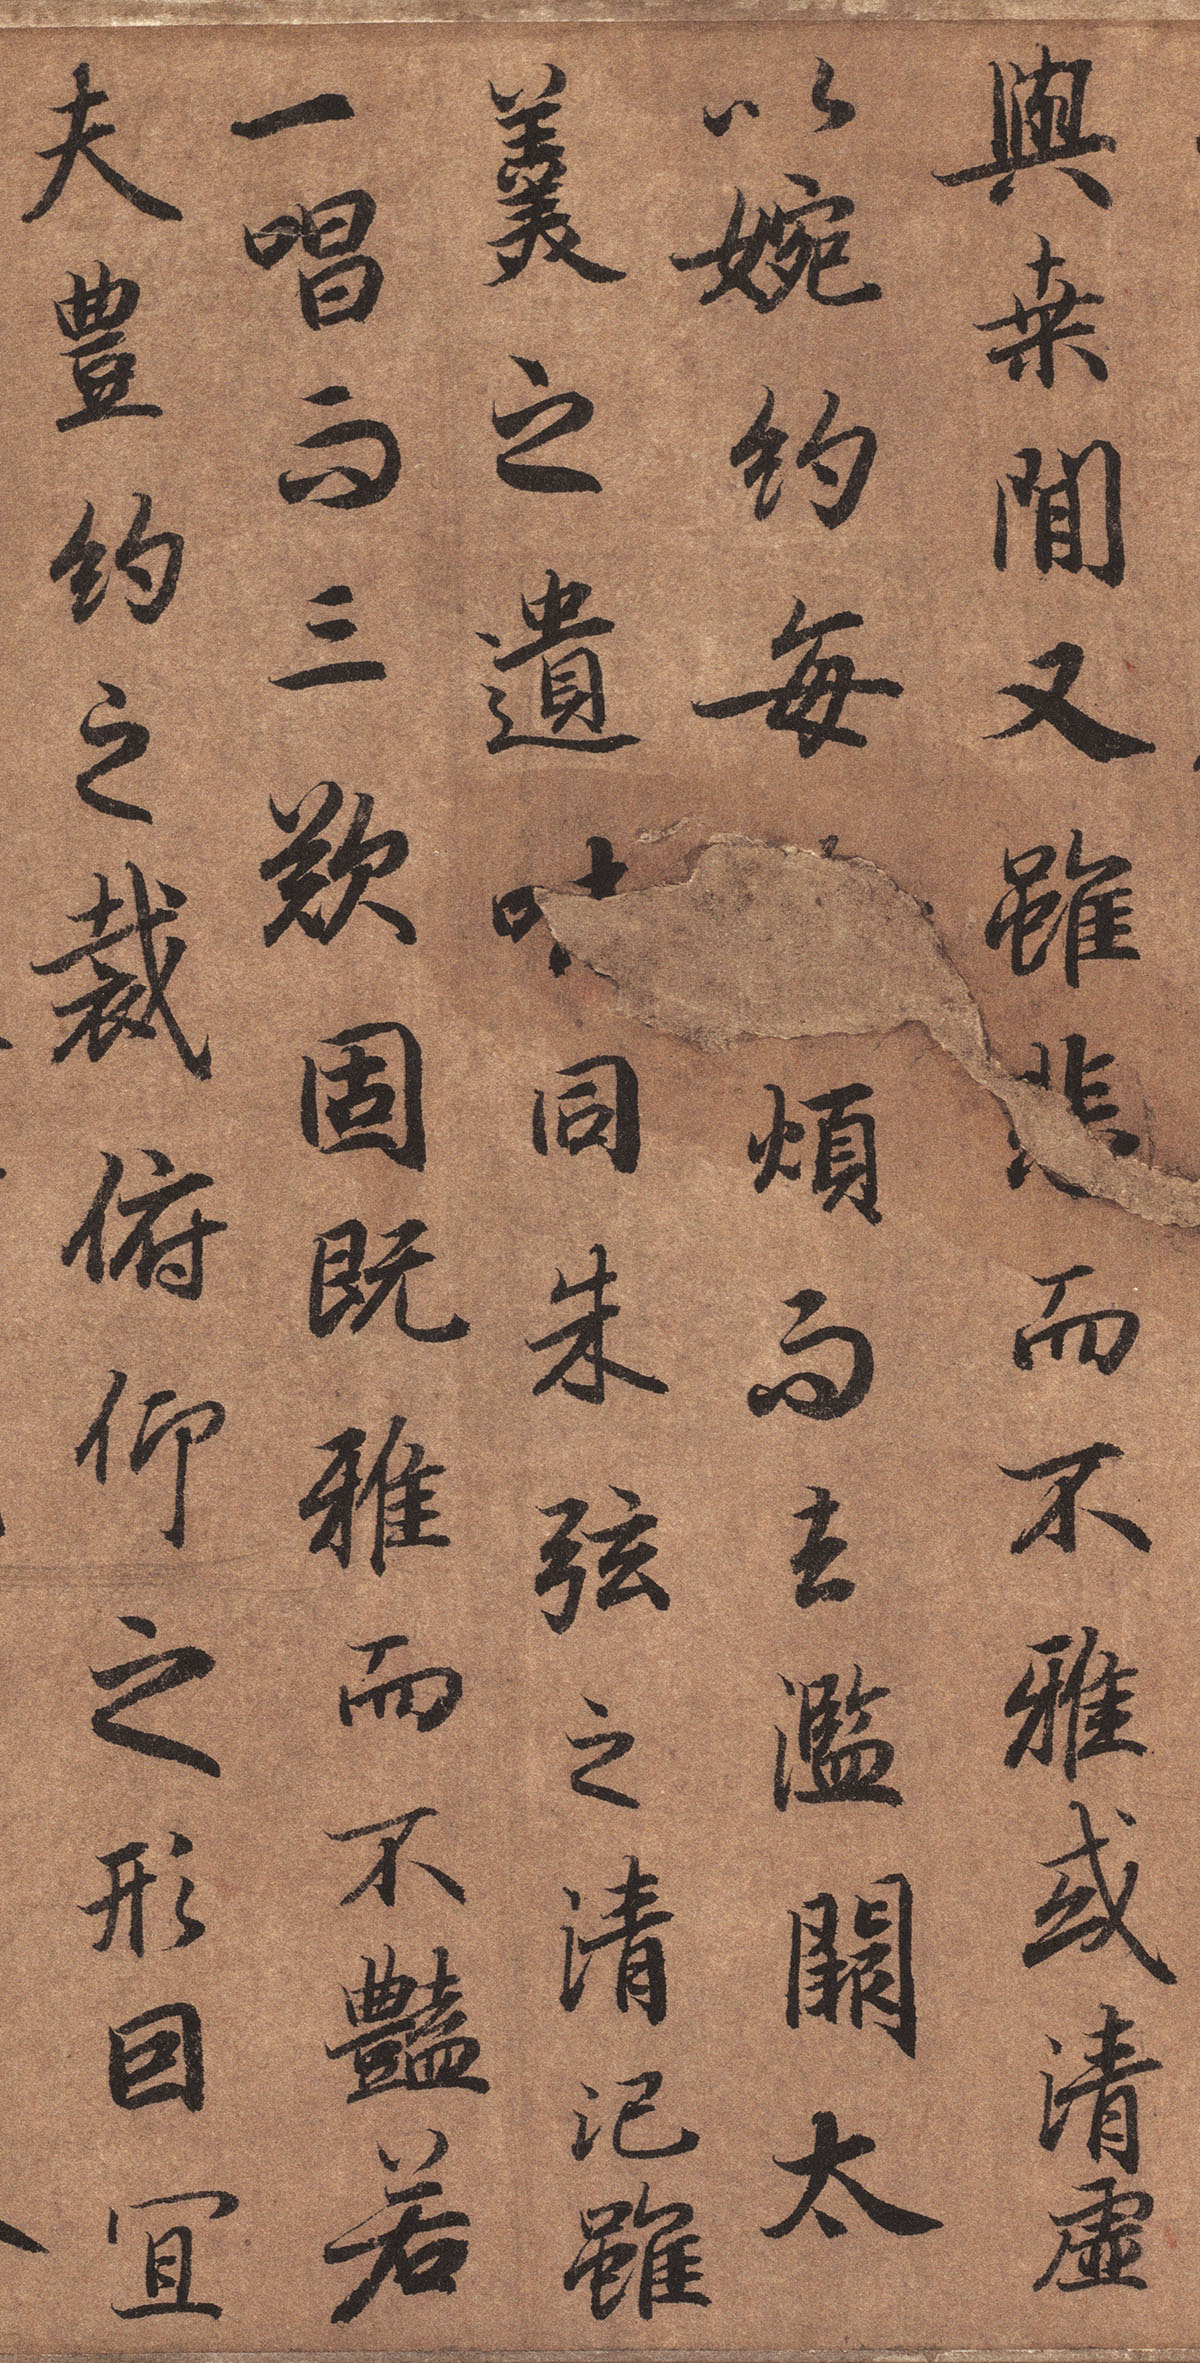 與桑間又雖悲而不雅或清虛
以婉約每煩而去濫闕太
羹之遺味同朱弦之清氾雖
一唱而三歎固既雅而不豔若
夫豐約之裁俯仰之形因宜